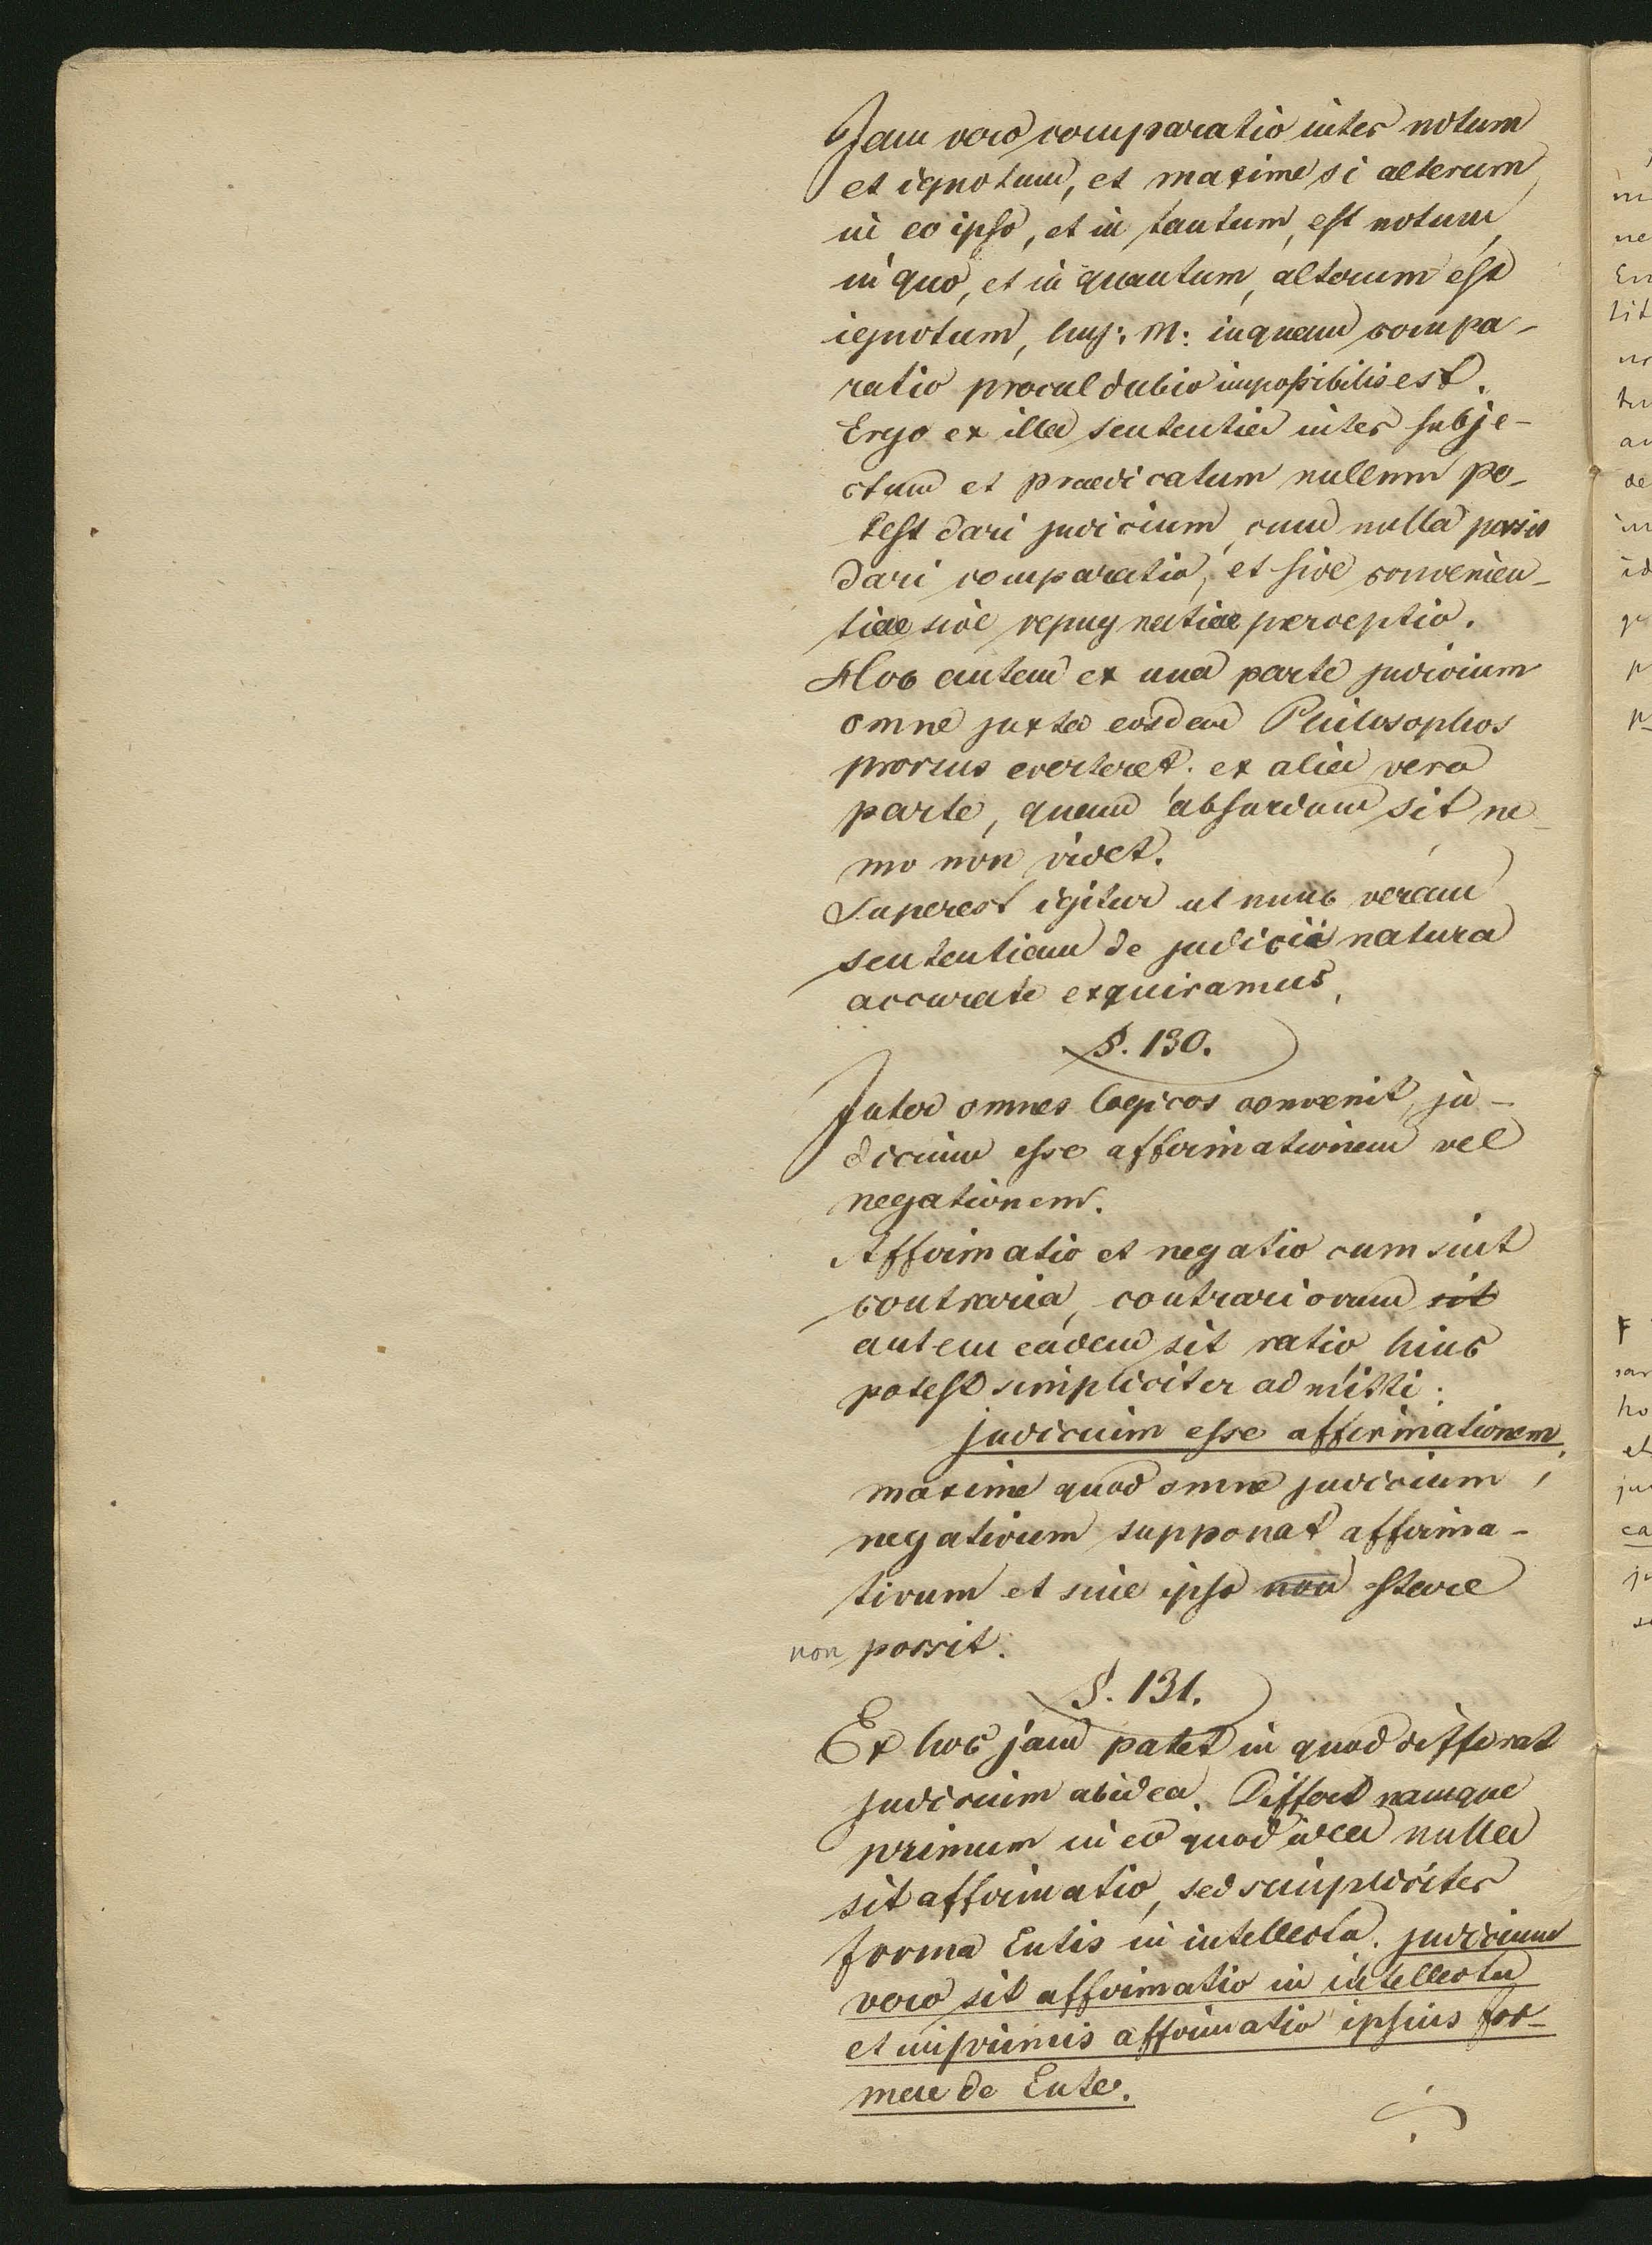 Jam vero comparatio inter notum
et ignotum, et maxime si alterum
in eo ipso, et in tantum, est notum,
in quo, et in quantum, alterum est
ignotum, huj: M: inquam compa-
ratio procul dubio impossibilis est.
Ergo ex illa sententia inter subje-
ctum et praedicatum nullum po-
test dari judicium, cum nulla possit
dari comparatio, et sive convenien-
tiae sive repugnatiae perceptio.
Hoc autem ex una parte judicium
omne juxta eosdem Philosophos
prorsus everteret. ex alia vero
parte, quam absurdum sit ne-
mo non videt.
Superest igitur ut nunc veram
sententiam de judicii natura
accurate exquiramus,
§. 130.
Inter omnes logicos convenit, ju-
dicium esse affirmationem vel
negationem.
Affirmatio et negatio cum sint
contraria, contrariorum sit
autem eadem sit ratio hinc
potest simpliciter admitti:
judicium esse affirmationem;
maxime quod omne judicium
negativum supponat affirma-
tivum et sine ipso non stare
non possit.
§. 131.
Ex hoc jam patet in quod differat
judicium ab idea. Differt namque
primum in eo quod idea nulla
sit affirmatio, sed simpliciter
forma Entis in intellectu. judicium
vero sit affirmatio in intellectu
et imprimis affirmatio ipsius for-
mae de Ente.